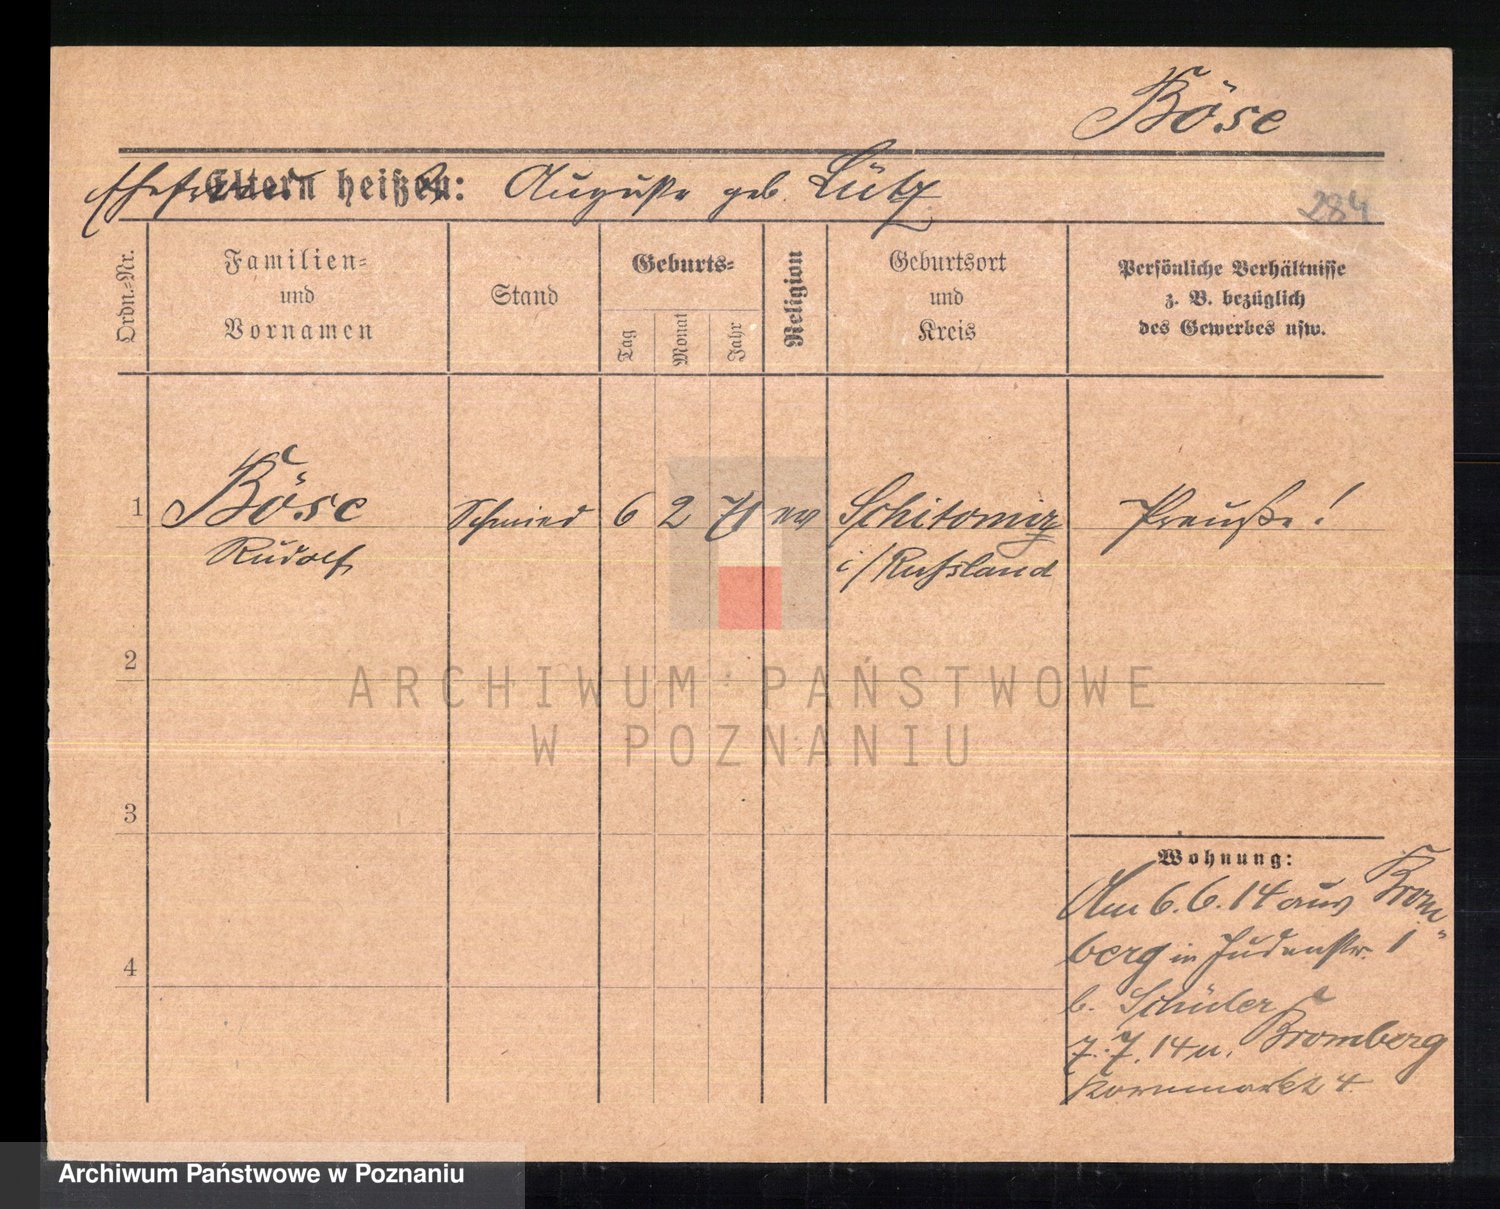 Böse
Ehefrau Eltern heißen: Auguste geb. Lütz
284
Ordn.-Nr.
Familien-
und
Vornamen
Stand
Geburts-
Tag
Monat
Jahr
Religion
Geburtsort
und
Kreis
Persönliche Verhältnisse
z. B. bezüglich
des Gewerbes usw.
1 Böse Schmied 6 2 71 ev Schitomir Preuße!
Rudolf i/Russland
2
ARCHIWUM PAŃSTWOWE
W POZNANIU
3
Wohnung:
Am 6.6.14 aus Brom-
berg in Judenstr. 1
b. Schüler
7.7.14 n. Bromberg
Kornmarkt 4.
4
Archiwum Państwowe w Poznaniu